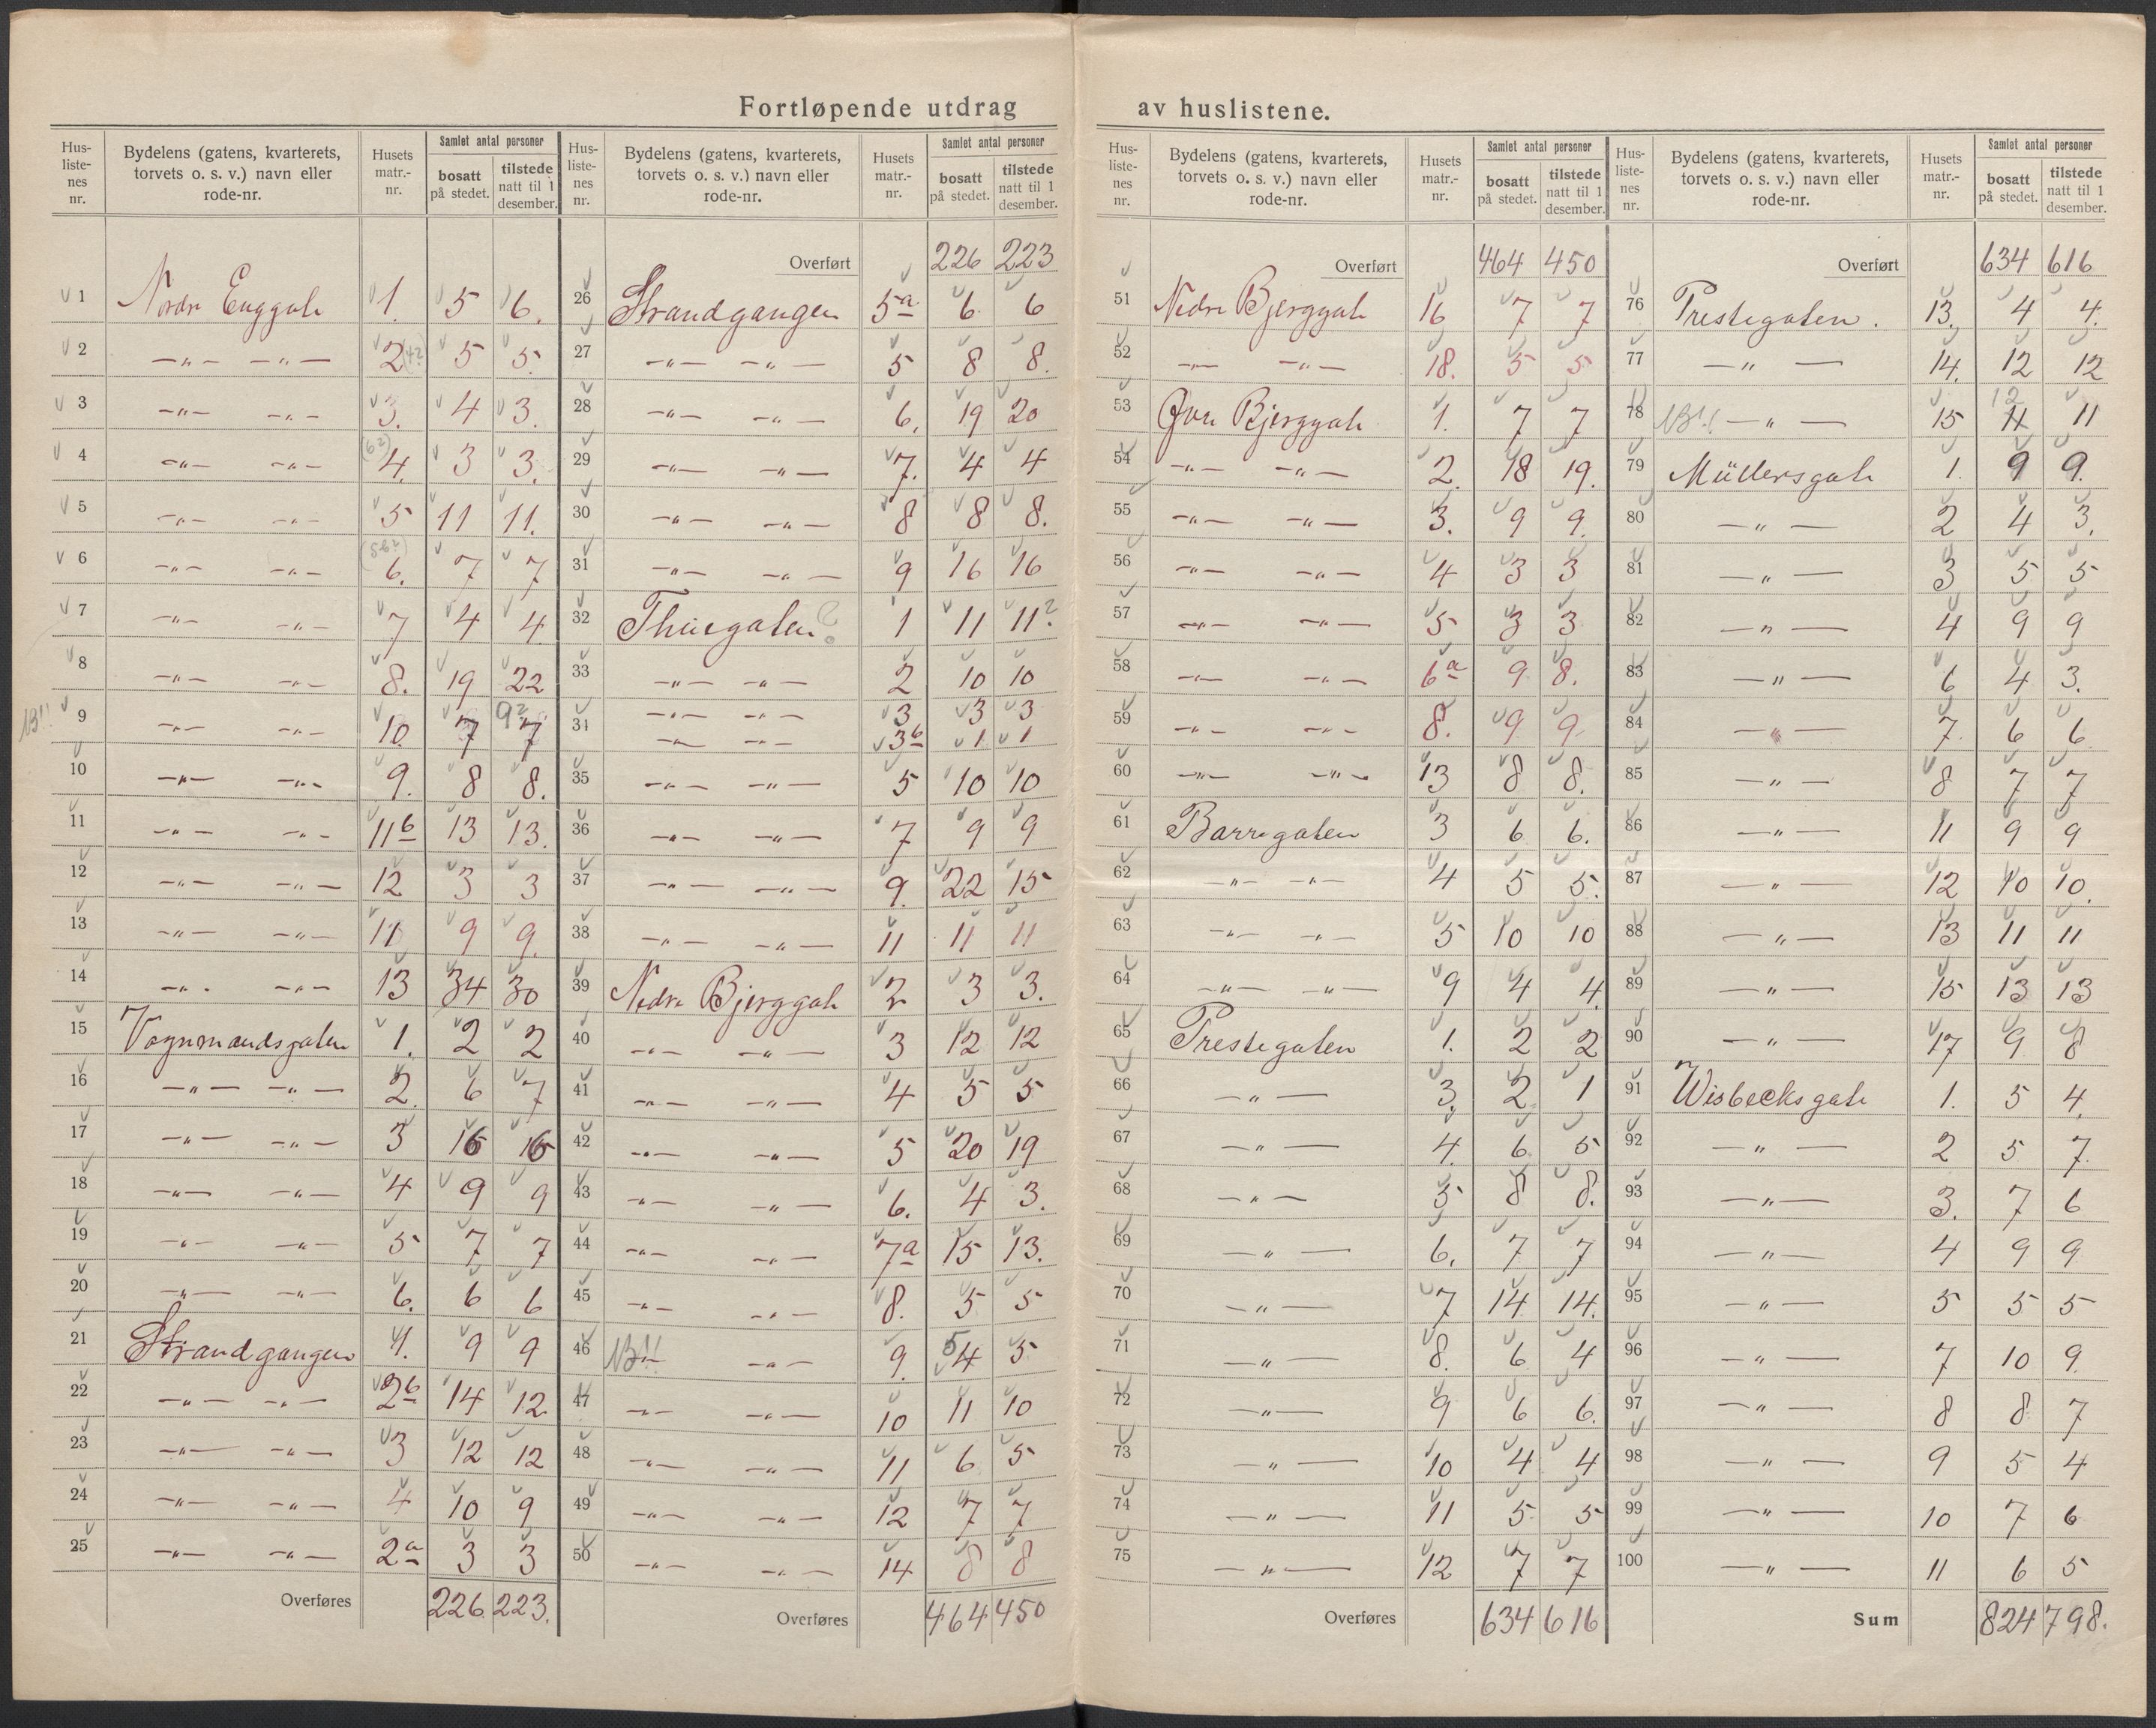 Fortløpende utdrag av huslistene.
Hus-liste-nes nr. | Bydelens (gatens, kvarterets, torvets o. s. v.) navn eller rode-nr. | Husets matr.-nr. | Samlet antal personer bosatt på stedet. | tilstede natt til 1 desember.
1 Nordre Enggate 1. 5 6.
2 —„— —„— 2 (4?) 5 5.
3 —„— —„— 3. 4 3.
4 —„— —„— (6?) 4. 3 3.
5 —„— —„— 5 11 11.
6 —„— —„— 6. 7 7
7 —„— —„— 7 4 4.
8 —„— —„— 8. 19 22
NB!! 9 —„— —„— 10. 7 7 9?
10 —„— —„— 9. 8 8.
11 —„— —„— 11b 13 13.
12 —„— —„— 12 3 3
13 —„— —„— 11 9 9.
14 —„— —„— 13 34 30
15 Vognmandsgaten 1. 2 2
16 —„— —„— 2. 6 7
17 —„— —„— 3 16 16
18 —„— —„— 4 9 9
19 —„— —„— 5 7 7
20 —„— —„— 6. 6 6
21 Strandgangen 1. 9 9
22 —„— —„— 2b 14 12.
23 —„— —„— 3 12 12
24 —„— —„— 4 10 9
25 —„— —„— 2a 3 3
Overføres 226. 223.
Hus-liste-nes nr. | Bydelens (gatens, kvarterets, torvets o. s. v.) navn eller rode-nr. | Husets matr.-nr. | Samlet antal personer bosatt på stedet. | tilstede natt til 1 desember.
Overført 226 223
26 Strandgangen 5a 6 6
27 —„— —„— 5 8 8.
28 —„— —„— 6. 19 20
29 —„— —„— 7. 4 4
30 —„— —„— 8 8 8.
31 —„— —„— 9 16 16
32 Thuegaten? 1 11 11?
33 —„— —„— 2 10 10
34 —„— —„— 3 3 3
—„— —„— 3b 1 1
35 —„— —„— 5 10 10
36 —„— —„— 7 9 9
37 —„— —„— 9. 22 15
38 —„— —„— 11 11 11
39 Nedre Bjerggate 2 3 3.
40 —„— —„— 3 12 12
41 —„— —„— 4 5 5
42 —„— —„— 5 20 19
43 —„— —„— 6. 4 3.
44 —„— —„— 7a 15 13.
45 —„— —„— 8. 5 5
46 NB!! —„— 9. 5 4 5
47 —„— —„— 10 11 10
48 —„— —„— 11 6 5
49 —„— —„— 12 7 7
50 —„— —„— 14 8 8
Overføres 464 450
Hus-liste-nes nr. | Bydelens (gatens, kvarterets, torvets o. s. v.) navn eller rode-nr. | Husets matr.-nr. | Samlet antal personer bosatt på stedet. | tilstede natt til 1 desember.
Overført 464 450
51 Nedre Bjerggate 16 7 7
52 —„— —„— 18. 5 5
53 Øvre Bjerggate 1. 7 7
54 —„— —„— 2. 18 19.
55 —„— —„— 3. 9 9.
56 —„— —„— 4 3 3
57 —„— —„— 5 3 3
58 —„— —„— 6a 9 8.
59 —„— —„— 8. 9 9
60 —„— —„— 13 8 8.
61 Barregaten 3 6 6.
62 —„— —„— 4 5 5.
63 —„— —„— 5 10 10
64 —„— —„— 9 4 4.
65 Prestegaten 1. 2 2
66 —„— 3. 2 1
67 —„— 4. 6 5
68 —„— 5 8 8.
69 —„— 6. 7 7
70 —„— 7 14 14.
71 —„— 8. 6 4
72 —„— 9 6 6.
73 —„— 10 4 4
74 —„— 11 5 5
75 —„— 12 7 7
Overføres 634 616
Hus-liste-nes nr. | Bydelens (gatens, kvarterets, torvets o. s. v.) navn eller rode-nr. | Husets matr.-nr. | Samlet antal personer bosatt på stedet. | tilstede natt til 1 desember.
Overført 634 616
76 Prestegaten. 13. 4 4.
77 —„— 14. 12 12
78 NB!! —„— 15 12 11 11
79 Müllersgate 1. 9 9.
80 —„— 2 4 3.
81 —„— 3 5 5
82 —„— 4 9 9
83 —„— 6 4 3.
84 —„— 7. 6 6.
85 —„— 8 7 7
86 —„— 11 9 9
87 —„— 12 10 10.
88 —„— 13 11 11
89 —„— 15 13 13
90 —„— 17 9 8
91 Wisbecksgate 1. 5 4.
92 —„— 2 5 7.
93 —„— 3. 7 6
94 —„— 4 9 9
95 —„— 5 5 5
96 —„— 7 10 9.
97 —„— 8 8 7
98 —„— 9 5 4
99 —„— 10 7 6
100 —„— 11 6 5
Sum 824 798.